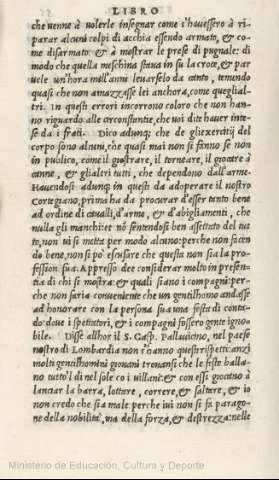 LIBRO
che uenne à uolerle insegnar come s'hauessero à ri-
parar alcuni colpi di acchia essendo armato, & co-
me disarmato & à mostrar le prese di pugnale: di
modo che quella meschina staua in su la croce, & par
uele un'hora mill'anni leuarselo da canto, temendo
quasi che non amazzasse lei anchora, come quegli al-
tri. In questi errori incorrono coloro che non han-
no riguardo alle circonstantie, che uoi dite hauer inte-
se da i frati. Dico adunq; che de gli exercitij del
corpo sono alcuni, che quasi mai non si fanno se non
in publico, come il giostrare, il torneare, il giocare à
canne, & gli altri tutti, che dependono dall'arme.
Hauendosi adunq; in questi da adoperare il nostro
Cortegiano, prima ha da procurar d'esser tanto bene
ad ordine di caualli, d'arme, & d'abigliamenti, che
nulla gli manchi: et nō sentendosi ben assettato del tut
to, non ui si metta per modo alcuno: perche non facen
do bene, non si po escusare che questa non sia la pro-
fession sua. Appresso dee considerar molto in presen-
tia di chi si mostra: & quali siano i compagni: per-
che non saria conueniente che un gentilhomo andasse
ad honorare con la persona sua una festa di conta-
do: doue i spettatori, & i compagni fossero gente igno-
bile. Disse allhor il S. Gasp. Pallauicino, nel paese
nostro di Lombardia non s'hanno questi rispetti: anzi
molti gentilhomini giouani trouansi che le feste balla-
no tutto'l dì nel sole co i uillani: & con essi giocano à
lanciar la barra, lottare, correre, & saltare, & io
non credo che sia male perche iui non si fa parago-
ne della nobilità, ma della forza, & destrezza: nelle
Ministerio de Educación, Cultura y Deporte